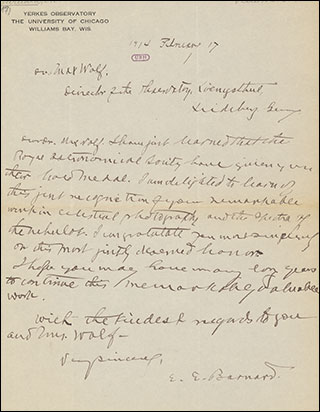 YERKES OBSERVATORY
THE UNIVERSITY OF CHICAGO
WILLIAMS BAY, WIS.
1914 February 17
Dr. Max Wolf,
Director of the Observatory, Koenigstuhl,
Heidelberg
Dear Dr. Wolf. I have just learned that the
Royal Astronomical Society have given you
their Gold Medal. I am delighted to learn of
this just recognition of your remarkable
work in celestial photography and the spectra of
the nebulae. I congratulate you most sincerely
on this most justly deserved honor.
I hope you may have many long years
to continue this remarkably valuable
work.
With the kindest regards to you
and Mrs. Wolf-
Very sincerely,
E. E. Barnard.